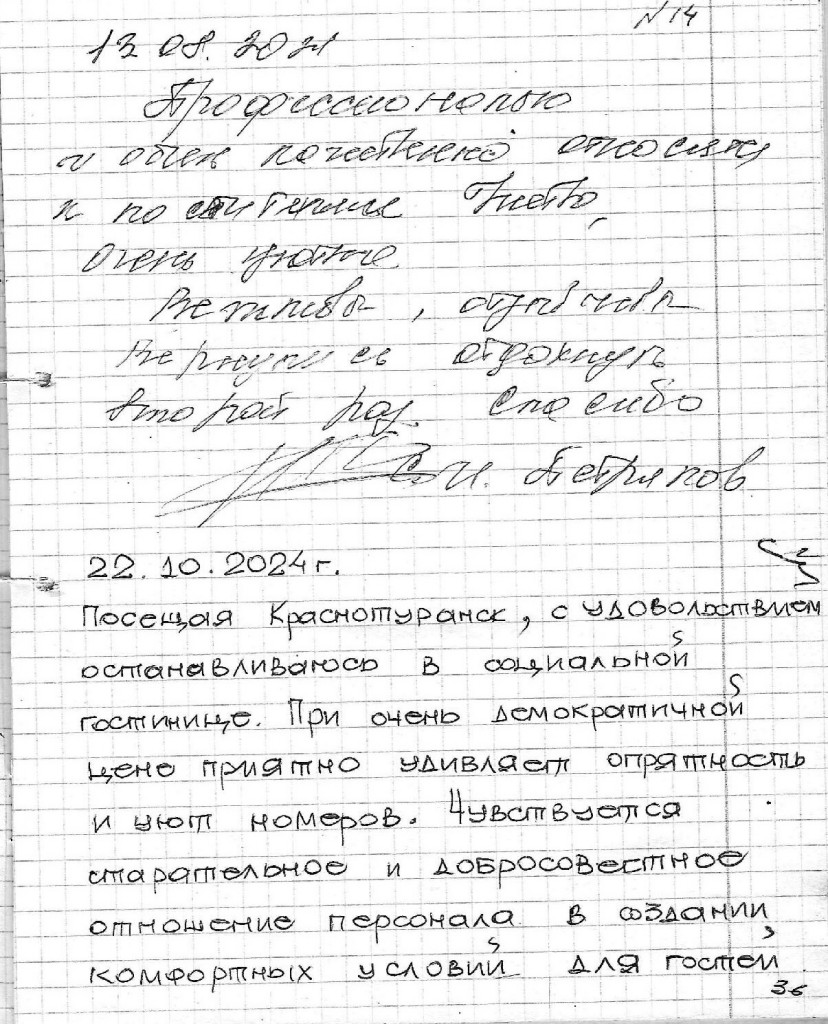 N 14
13 08. 2021
Профессионально
и очень относятся
к Чисто,
очень уютно.
Вежливы, отзывчивы
Вернулись отдохнуть
второй раз. Спасибо
22.10.2024г.
Посещая Краснотуранск, с удовольствием
останавливаюсь в социальной
гостинице. При очень демократичной
цене приятно удивляет опрятность
и уют номеров. Чувствуется
старательное и добросовестное
отношение персонала в создании
комфортных условий для гостей
36